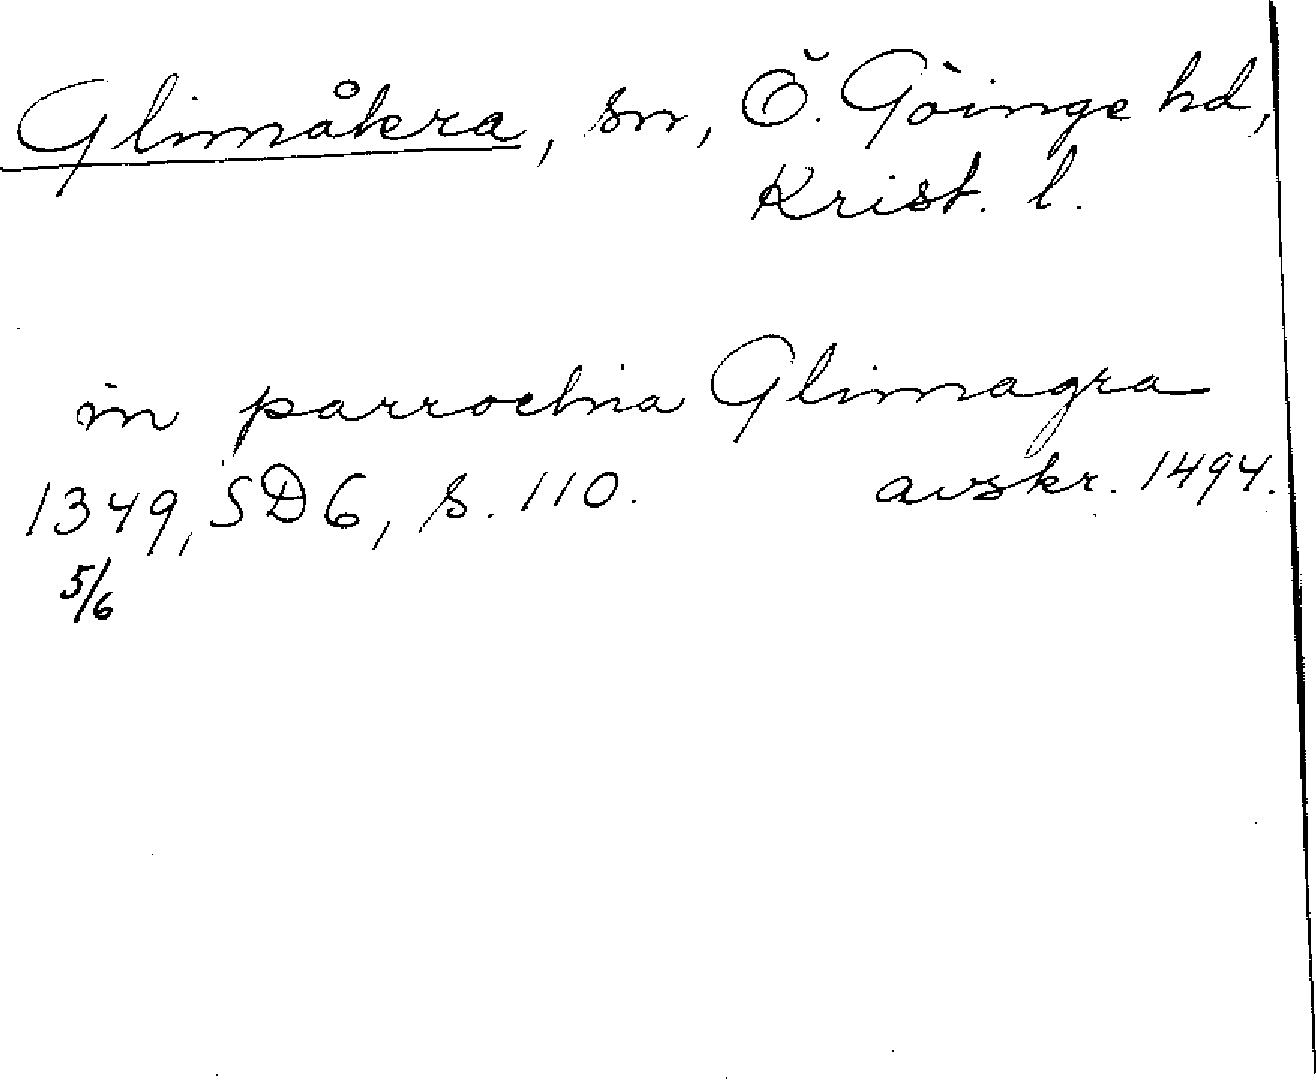 Glimåkra, sn, Ö. Göinge hd,
Krist. l.
in parrochia Glimagra
1349, SD 6, s. 110. avskr. 1494.
5/6